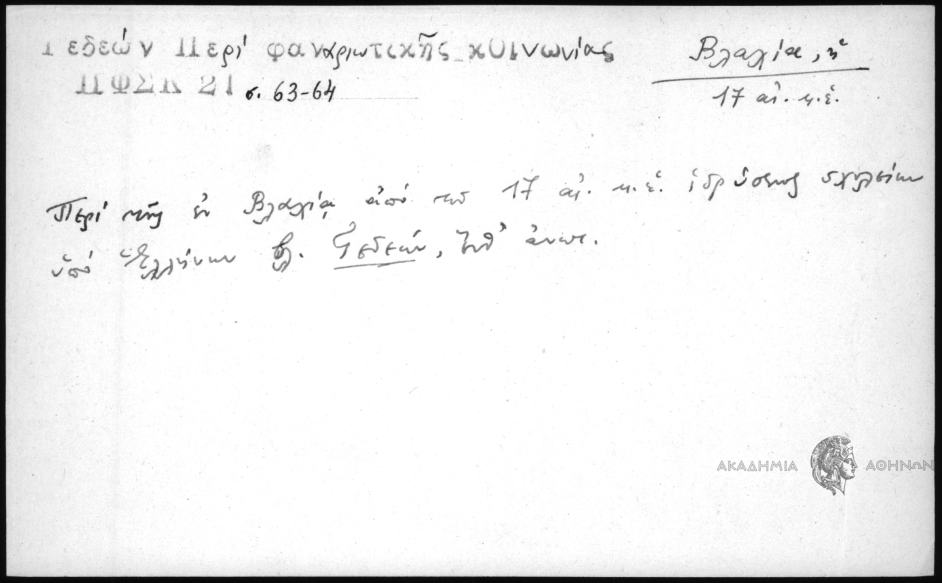 Γεδεών Περί φαναριωτικῆς κοινωνίας
ΠΦΣΚ 21 σ. 63-64
Βλαχία, ἡ
17 αἰ. κ.ἑ.
Περί τῆς ἐν Βλαχίᾳ ἀπό τοῦ 17 αἰ. κ.ἑ. ἱδρύσεως σχολείων
ὑπό Ἑλλήνων βλ. Γεδεών, ἔνθ' ἀνωτ.
ΑΚΑΔΗΜΙΑ ΑΘΗΝΩΝ